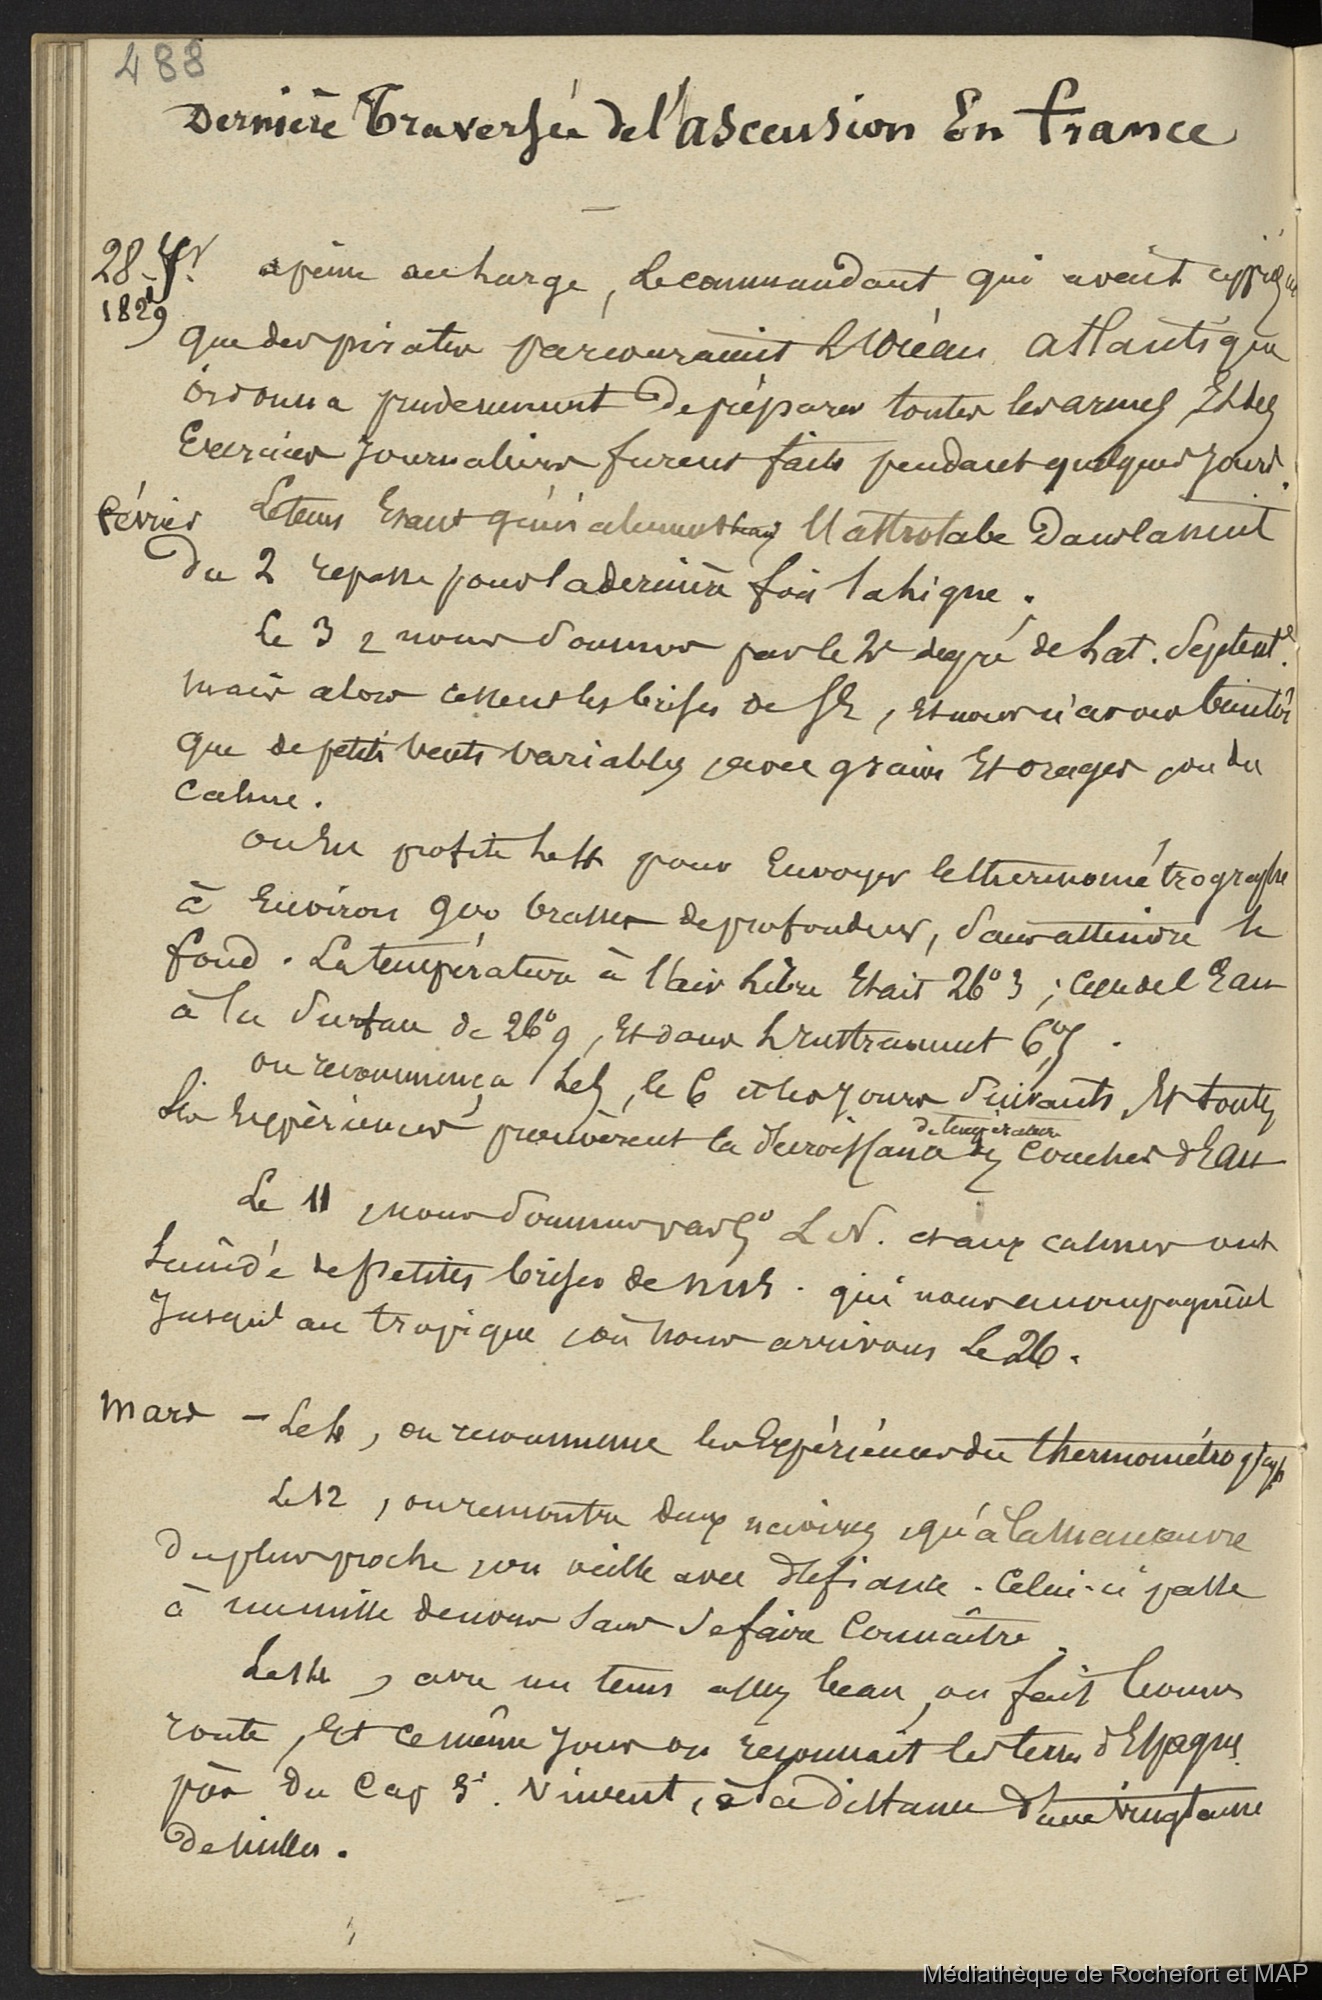 488
Dernière Traversée de l'ascension En france
28 Jr apeine au large, Le commandant qui avait appris
1829
que des pirates parcouraient L'Océan atlantique
ordonna prudemment De préparer toutes les armes, Et des
Exercices Journaliers furent faits pendant quelques Jours.
février Le tems Etant généralement beau L'astrolabe Dans la nuit
Du 2 repasse pour la dernière fois la Ligne.
Le 3, nous sommes par le 2e degré de Lat. Septent.e
mais alors cessent les brises de SE, Et nous n'avons bientôt
que de petits vents variables, avec grains Et orages, ou du
Calme.
on En profite Le 4 pour Envoyer le thermométrographe
à Environ 900 brasses de profondeur, Sans atteindre le
fond. La température à l'air Libre Etait 26° 3; Celle de l'Eau
à la Surface de 26° 9, Et dans L'instrument 6°
on recommença Le 5, le 6 et les Jours Suivants, Et toutes
Les Expériences prouvèrent la décroissance de température des Couches d'Eau
Le 11, nous Sommes par 5° L N. et aux calmes ont
Succédé de petites brises de NNE. qui nous accompagnent
Jusqu'au tropique, où nous arrivons Le 26.
Mars - Le 4, on recommence les Expériences du thermométrographe
Le 12, on rencontre deux navires, qu'à la Manœuvre
Du plus proche, on veille avec défiance. Celui-ci passe
à un mille de nous Sans Se faire Connaître.
Le 14, avec un tems assez beau, on fait bonne
route, Et Ce même Jour on reconnait les terres d'Espagne
près du Cap St. Vincent, à la distance d'une vingtaine
De milles.
Médiathèque de Rochefort et MAP